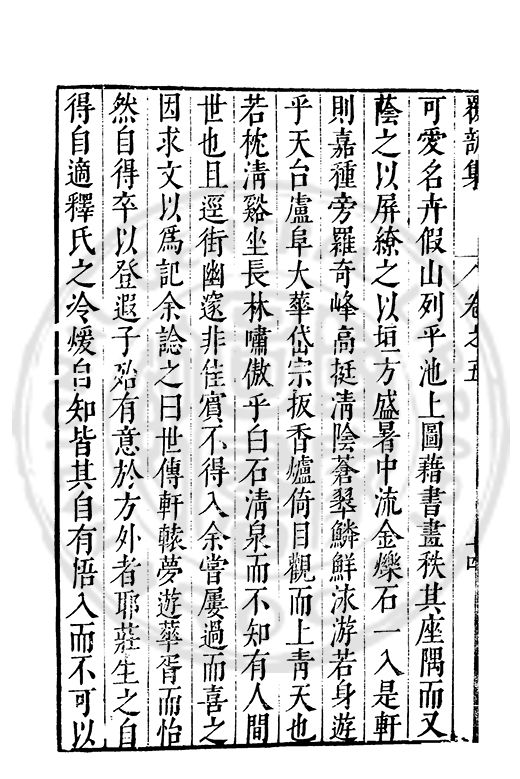 覆瓿集 卷之五
可愛名卉假山列乎池上圖藉書畫秩其座隅而又
蔭之以屏繚之以垣方盛暑中流金爍石一入是軒
則嘉種旁羅奇峰高挺清陰蒼翠鱗鮮泳游若身遊
乎天台盧阜大華岱宗扳香爐倚目觀而上青天也
若枕清谿坐長林嘯傲乎白石清泉而不知有人間
世也且逕街幽邃非佳賓不得入余嘗屢過而喜之
因求文以爲記余諗之曰世傳軒轅夢遊華胥而怡
然自得卒以登遐子殆有意於方外者耶莊生之自
得自適釋氏之冷煖自知皆其自有悟入而不可以